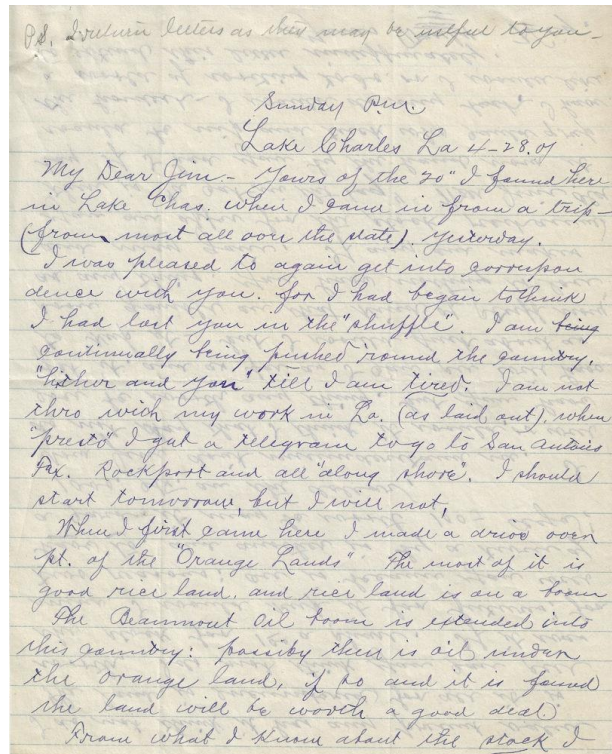 P.S. I return letters as they may be useful to you -
Sunday P.M.
Lake Charles La 4-28.01
My Dear Jim - Yours of the 20" I found here
in Lake Chas. when I came in from a trip -
(from most all over the state). yesterday.
I was pleased to again get into correspon
dence with you. for I had began to think
I had lost you in the "shuffle". I am being
continually being pushed 'round the country,
"hither and yon" till I am tired. I am not
thro with my work in La. (as laid out). when
"presto" I get a telegram to go to San Antonio
Tex. Rockport and all "along shore". I should
start tomorrow, but I will not,
When I first came here I made a drive over
pt. of the "Orange Lands" The most of it is
good rice land, and rice land is on a boom
The Beaumont Oil boom is extended into
this country: possiby there is oil under
the orange land, if so and it is found
the land will be worth a good deal.
From what I know about the stock I